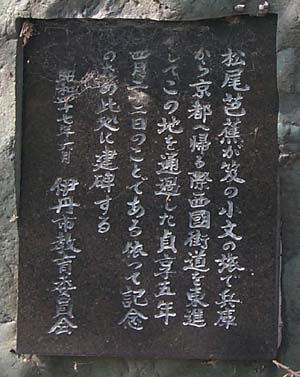 松尾芭蕉が笈の小文の旅で兵庫
から京都へ帰る際西國街道を東進
してこの地を通過した貞享五年
四月二十一日のことである依って記念
のため此処に建碑する
昭和五十七年一月
伊丹市教育委員会